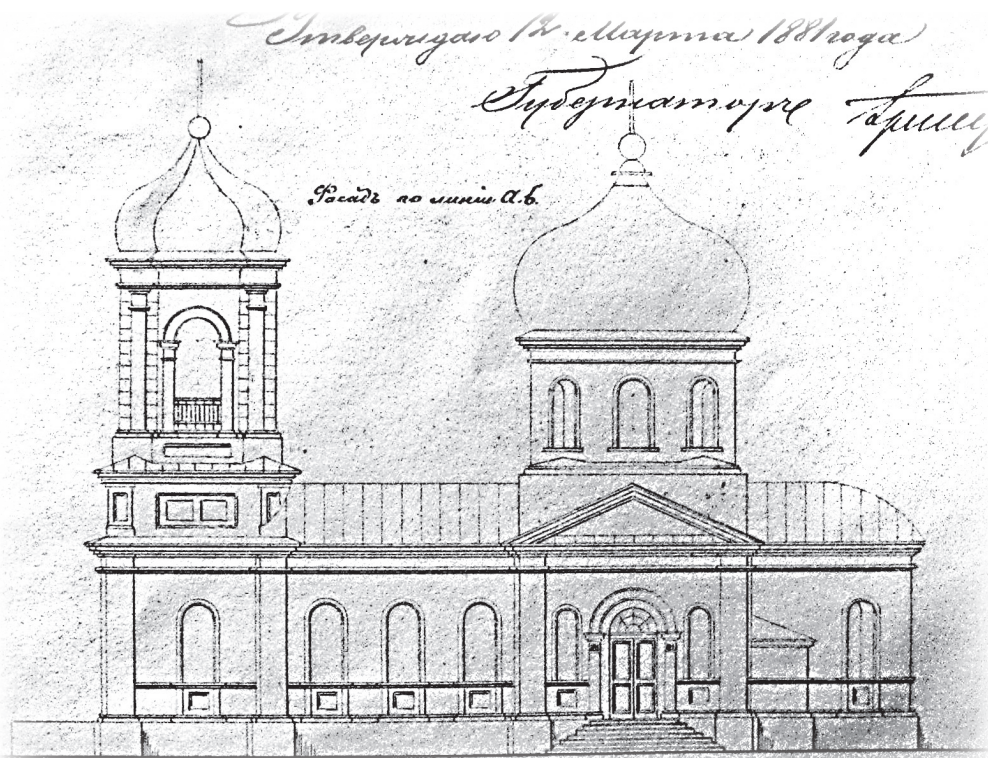 Утверждаю 12 Марта 1881 года
Губернаторъ
Фасадъ по линіи А.Б.